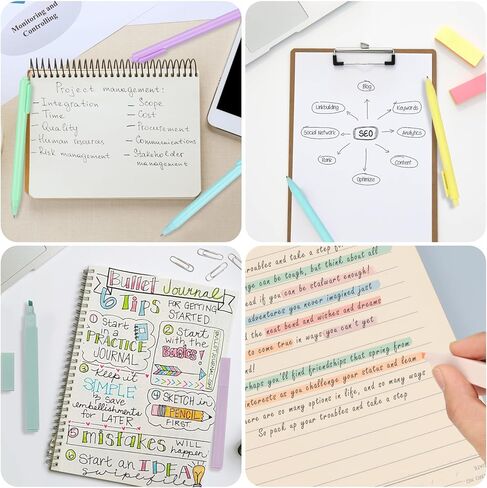 Monitoring and
Controlling
Project management:
– Integration
– Time
– Quality
– Human resources
– Risk management
– Scope
– Cost
– Procurement
– Communications
– Stakeholder
management
Blog
Linkbuilding
Keywords
Social network
SEO
Analytics
Rank
Content
Optimize
Bullet Journal
6 TIPS
FOR GETTING
STARTED
1 Start
in a
PRACTICE
JOURNAL
2 Start
with the
Basics!
3 Keep it
SIMPLE
& save
embellishments
for LATER
4 SKETCH in
PENCIL
FIRST
5 mistakes WILL
happen
6 Start an IDEA
swipefile
troubles and take a step
ge can be tough, but think about all
ead if you can be stalwart enough!
adventures you never imagined just
d the neat bend and wishes and dreams
to come true in ways you can't yet
rhaps you'll find friendships that spring from
interests as you challenge your status and learn
ere are so many options in life, and so many ways
So pack up your troubles and take a step